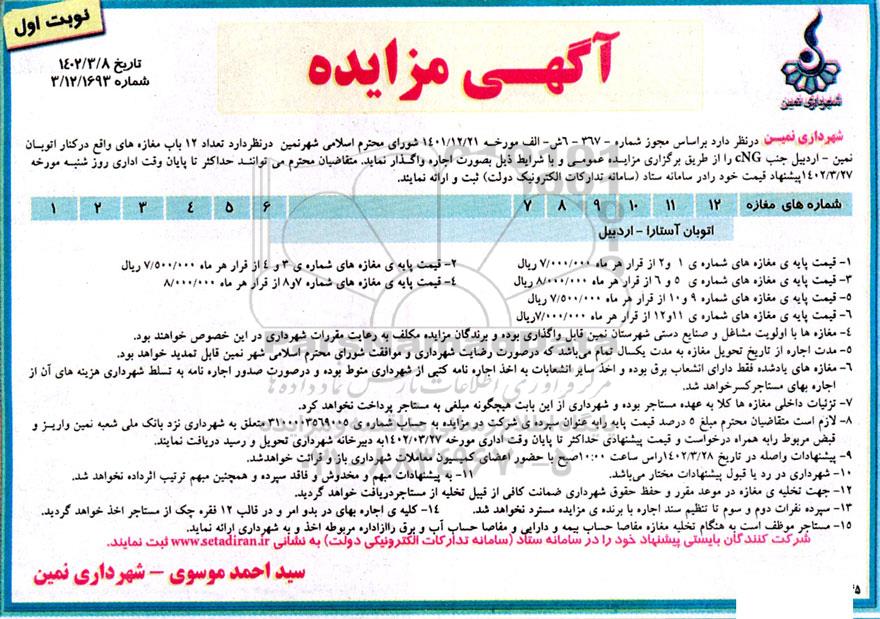 نوبت اول
آگهی مزایده
تاریخ ۱۴۰۲/۳/۸
شماره ۳/۱۲/۱۶۹۳
شهرداری نمین
شهرداری نمیـن درنظر دارد براساس مجوز شماره - ۳۶۷ - ۶ش- الف مورخـه ۱۴۰۱/۱۲/۲۱ شورای محترم اسلامی شهرنمین درنظردارد تعداد ۱۲ باب مغازه های واقع درکنار اتوبـان
نمین - اردبیل جنب cNG را از طریق برگزاری مزایـده عمومـی با شرایط ذیل بصورت اجاره واگـذار نماید. متقاضیان محترم می توانـند حداکثر تا پایان وقت اداری روز شنبـه مورخه
۱۴۰۲/۳/۲۷پیشنهاد قیمت خود رادر سامانه ستاد (سامانه تدارکات الکترونیک دولت) ثبت و ارائه نمایند.
شماره های مغازه ۱۲ ۱۱ ۱۰ ۹ ۸ ۷ ۶ ۵ ۴ ۳ ۲ ۱
اتوبان آستارا - اردبیل
۱- قیمت پایه ی مغازه های شماره ی ۱ و۲ از قرار هر ماه ۷/۰۰۰/۰۰۰ ریال
۲- قیمت پایه ی مغازه های شماره ی ۳ و ۴ از قرار هر ماه ۷/۵۰۰/۰۰۰ ریال
۳- قیمت پایه ی مغازه های شماره ی ۵ و ۶ از قرار هر ماه ۸/۰۰۰/۰۰۰ ریال
۴- قیمت پایه ی مغازه های شماره ۷و۸ از قرار هر ماه ۸/۰۰۰/۰۰۰
۵- قیمت پایه ی مغازه های شماره ۹ و۱۰ از قرار هر ماه ۷/۵۰۰/۰۰۰ ریال
۶- قیمت پایه ی مغازه های شماره ی ۱۱و۱۲ از قرار هر ماه ۷/۰۰۰/۰۰۰ریال
۴- مغازه ها با اولویت مشاغل و صنایع دستی شهرستان نمین قابل واگذاری بوده و برندگان مزایده مکلف به رعایت مقررات شهرداری در این خصوص خواهند بود.
۵- مدت اجاره از تاریخ تحویل مغازه به مدت یکسال تمام می‌باشد که درصورت رضایت شهرداری و موافقت شورای محترم اسلامی شهر نمین قابل تمدید خواهد بود.
۶- مغازه های یادشده فقط دارای انشعاب برق بوده و اخذ سایر انشعابات به اخذ اجاره نامه کتبی از شهرداری منوط بوده و درصورت صدور اجاره نامه به تسلط شهرداری هزینه های آن از
اجاره بهای مستاجرکسرخواهد شد.
۷- تزئیات داخلی مغازه ها کلا به عهده مستاجر بوده و شهرداری از این بابت هیچگونه مبلغی به مستاجر پرداخت نخواهد کرد.
۸- لازم است متقاضیان محترم مبلغ ۵ درصد قیمت پایه رابه عنوان سپرده‌ای شرکت درمزایده به حساب شماره ی ۳۱۰۰۰۳۵۶۹۰۰۵ متعلق به شهرداری نزد بانک ملی شعبه نمین واریـز و
قبض مربوط رابه همراه درخواست و قیمت پیشنهادی حداکثر تا پایان وقت اداری مورخه ۱۴۰۲/۰۳/۲۷به دبیرخانه شهرداری تحویل و رسید دریافت نمایند.
۹- پیشنهادات واصله در تاریخ ۱۴۰۲/۳/۲۸راس ساعت ۱۰:۰۰صبح با حضور اعضای کمیسیون معاملات شهرداری باز و قرائت خواهدشد.
۱۰- شهرداری در رد یا قبول پیشنهادات مختار می‌باشد.
۱۱- به پیشنهادات مبهم و مخدوش و فاقد سپرده و همچنین مبهم ترتیب اثرداده نخواهد شد.
۱۲- جهت تخلیه ی مغازه در موعد مقرر و حفظ حقوق شهرداری ضمانت کافی از قبیل تخلیه از مستاجردریافت خواهد گردید.
۱۳- سپرده نفرات دوم و سوم تا تنظیم سند اجاره با برنده ی مزایده مسترد نخواهد شد.
۱۴- کلیه ی اجاره بهای در بدو امر و در قالب ۱۲ فقره چک از مستاجر اخذ خواهد گردید.
۱۵- مستاجر موظف است به هنگام تخلیه مغازه مفاصا حساب بیمه و دارایی و مفاصا حساب آب و برق راازاداره مربوطه اخذ و به شهرداری ارائه نماید.
شرکت کنندگان بایستی پیشنهاد خود را در سامانه ستاد (سامانه تدارکات الکترونیکی دولت) به نشانی www.setadiran.ir ثبت نمایند.
سید احمد موسوی - شهرداری نمین